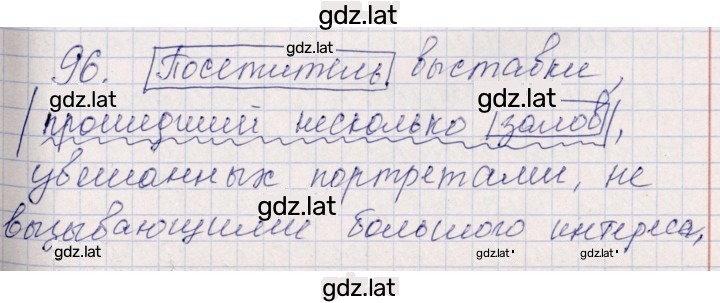 gdz.lat
96. Посетитель выставки,
gdz.lat
gdz.lat
gdz.lat
прошедший несколько залов,
увешанных портретами, не
gdz.lat
вызывающими большого интереса,
gdz.lat
gdz.lat
gdz.lat
gdz.lat